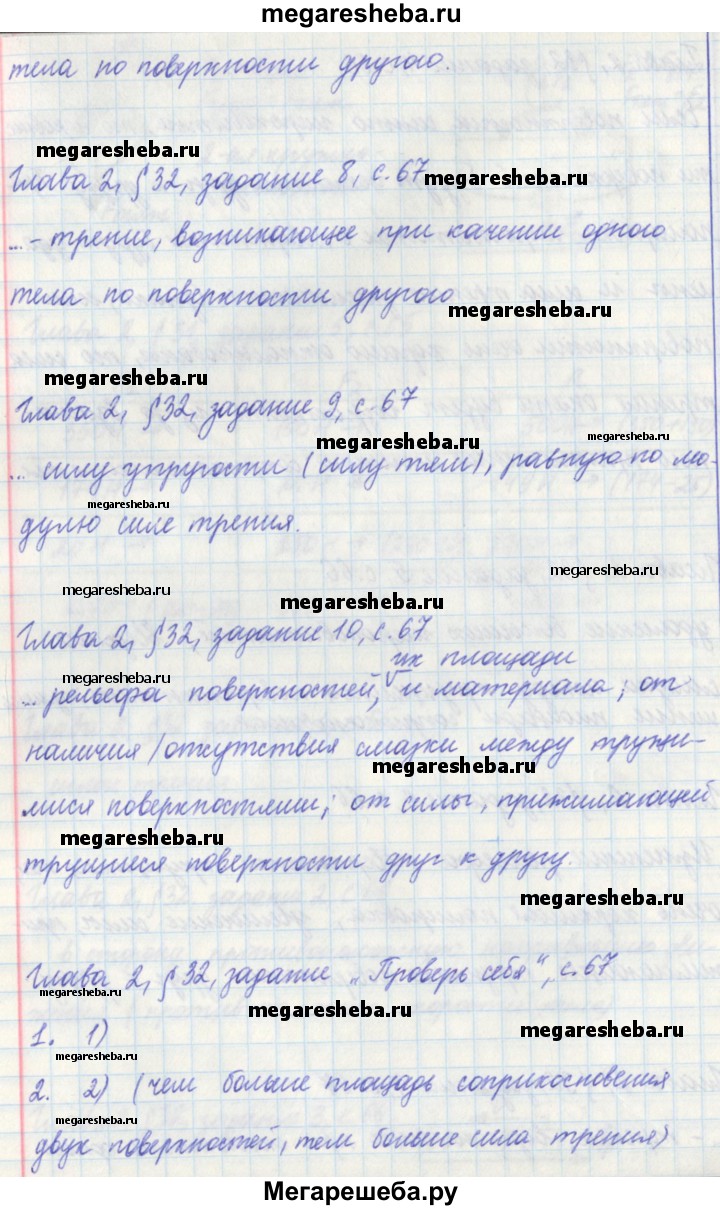 megaresheba.ru
тела по поверхности другого.
megaresheba.ru
Глава 2, §32, задание 8, с.67 megaresheba.ru
...- трение, возникающее при качении одного
тела по поверхности другого megaresheba.ru
megaresheba.ru
Глава 2, §32, задание 9, с.67
megaresheba.ru megaresheba.ru
... силу упругости (силу тяги), равную по мо-
megaresheba.ru
дулю силе трения.
megaresheba.ru megaresheba.ru
megaresheba.ru
Глава 2, §32, задание 10, с.67
их площади
megaresheba.ru
... рельефа поверхностей, и материала; от
наличия/отсутствия смазки между трущи-
megaresheba.ru
мися поверхностями; от силы, прижимающей
megaresheba.ru
трущиеся поверхности друг к другу.
megaresheba.ru
Глава 2, §32, задание „Проверь себя“, с.67
megaresheba.ru megaresheba.ru
1. 1) megaresheba.ru
megaresheba.ru
2. 2) (чем больше площадь соприкосновения
megaresheba.ru
двух поверхностей, тем больше сила трения)
Мегарешеба.ру